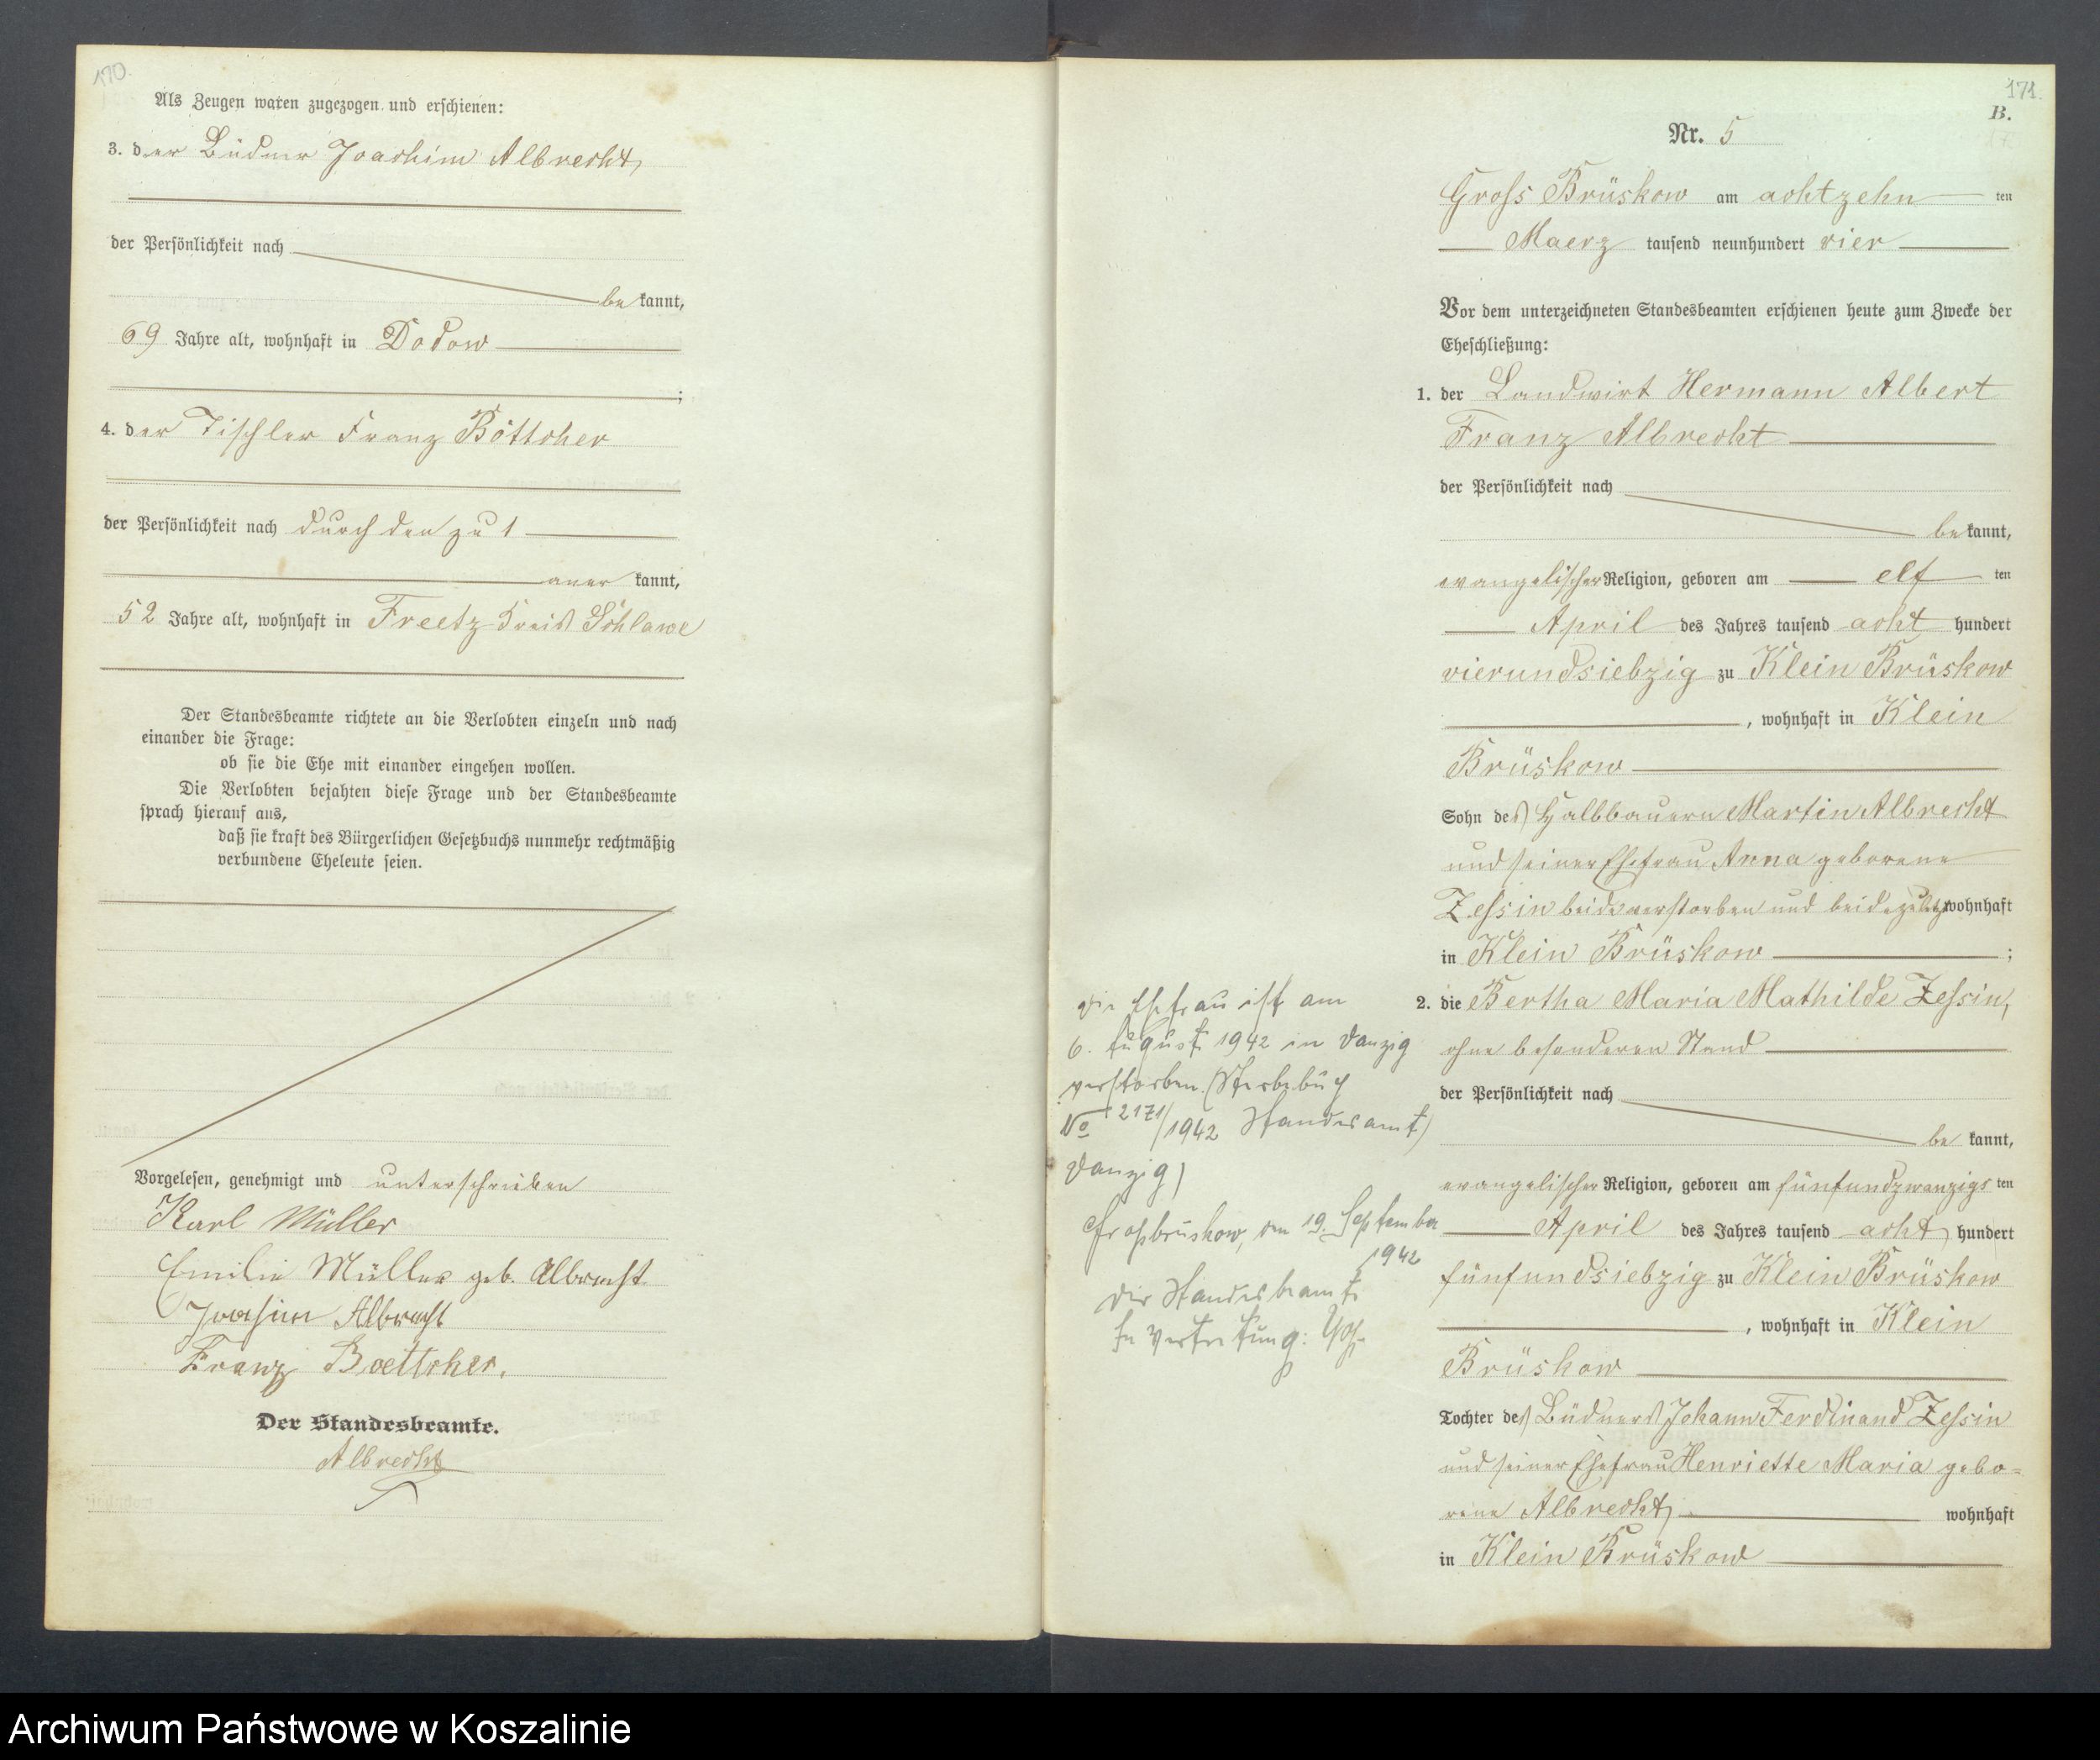 170.
Als Zeugen waren zugezogen und erschienen:
3. der Büdner Joachim Albrecht,
der Persönlichkeit nach
bekannt,
69 Jahre alt, wohnhaft in Dodow
;
4. der Tischler Franz Böttcher
der Persönlichkeit nach durch den zu 1
anerkannt,
52 Jahre alt, wohnhaft in Freetz Kreis Schlawe
Der Standesbeamte richtete an die Verlobten einzeln und nach
einander die Frage:
ob sie die Ehe mit einander eingehen wollen.
Die Verlobten bejahten diese Frage und der Standesbeamte
sprach hierauf aus,
daß sie kraft des Bürgerlichen Gesetzbuchs nunmehr rechtmäßig
verbundene Eheleute seien.
Vorgelesen, genehmigt und unterschrieben
Karl Müller
Emilie Müller geb. Albrecht.
Joachim Albrecht
Franz Boettcher.
Der Standesbeamte.
Albrecht
171.
B.
Nr. 5
Gross Brüskow am achtzehnten
Maerz tausend neunhundert vier
Vor dem unterzeichneten Standesbeamten erschienen heute zum Zwecke der
Eheschließung:
1. der Landwirt Hermann Albert
Franz Albrecht
der Persönlichkeit nach
bekannt,
evangelischer Religion, geboren am elften
April des Jahres tausend acht hundert
vierundsiebzig zu Klein Brüskow
, wohnhaft in Klein
Brüskow
Sohn des Halbbauern Martin Albrecht
und seiner Ehefrau Anna geborene
Zessin beide verstorben und beide zuletzt wohnhaft
in Klein Brüskow ;
2. die Bertha Maria Mathilde Zessin,
ohne besonderen Stand
der Persönlichkeit nach
bekannt,
evangelischer Religion, geboren am fünfundzwanzigsten
April des Jahres tausend acht hundert
fünfundsiebzig zu Klein Brüskow
, wohnhaft in Klein
Brüskow
Tochter des Büdners Johann Ferdinand Zessin
und seiner Ehefrau Henriette Maria gebo=
rene Albrecht, wohnhaft
in Klein Brüskow
Die Ehefrau ist am
6. August 1942 in Danzig
verstorben. (Sterbebuch
No 2171/1942 Standesamt
Danzig)
Großbrüskow, den 19. September
1942
Der Standesbeamte
In Vertretung:
Archiwum Państwowe w Koszalinie